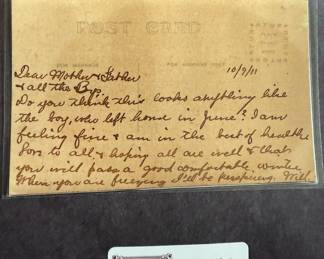 POST CARD
FOR ADDRESS ONLY
Dear Mother & Father 10/9/11
& all the Bys.
Do you think this looks anything like
the boy, who left home in June? I am
feeling fine & am in the best of health
love to all & hoping all are well & that
you will pass a good comfortable winter
When you are freezing I'll be perspiring. Will